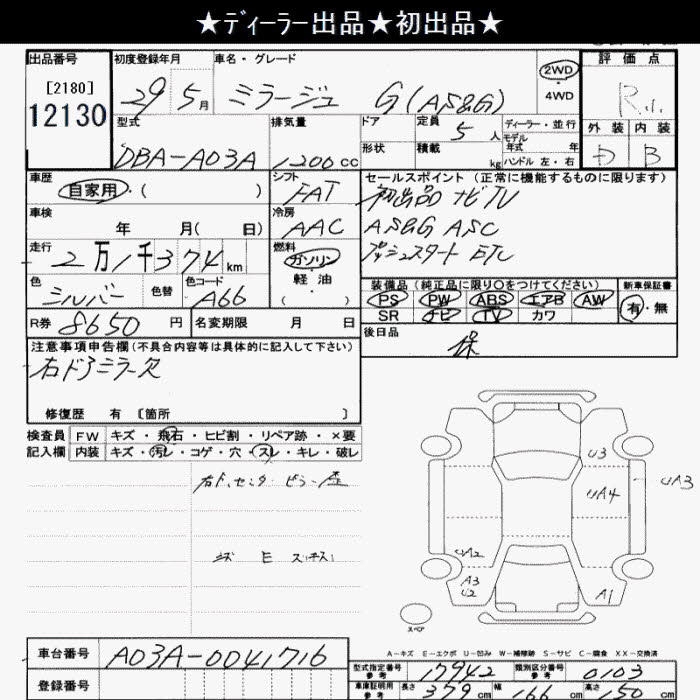 ★ディーラー出品★初出品★
出品番号
[2180]
12130
初度登録年月
29 5月
車名・グレード
ミラージュ G(AS&G)
2WD
・
4WD
評価点
R
外装 内装
D B
型式
DBA-A03A
排気量
1200cc
ドア
形状
定員 5人
積載 kg
ディーラー・並行
モデル年式 年
ハンドル 左・右
車歴
自家用・( )
シフト
FAT
セールスポイント(正常に機能するものに限ります)
初出品 ナビTV
AS&G ASC
プッシュスタート ETC
車検
年 月( 日)
冷房
AAC
走行
2万1千374km
燃料
ガソリン
・
軽油
・
( )
色
シルバー
色替
色コード
A66
装備品(純正品に限り○をつけてください)
PS PW ABS エアB AW
SR ナビ TV カワ
新車保証書
有・無
R券 8650円
名変期限 月 日
後日品
保
注意事項申告欄(不具合内容等は具体的に記入して下さい)
右ドアミラー欠
修復歴 有〔箇所 〕
検査員記入欄
FW キズ・飛石・ヒビ割・リペア跡・×要
内装 キズ・汚レ・コゲ・穴・スレ・キレ・破レ
U3
UA3
UA4
UA2
A3
U2
A1
スペア
A-キズ E-エクボ U-凹み W-補修跡 S-サビ C-腐食 XX-交換済
車台番号 A03A-0041716
登録番号
型式指定番号参考 17942
類別区分番号参考 0103
車庫証明用参考 長さ 379cm 幅 166cm 高さ 150cm